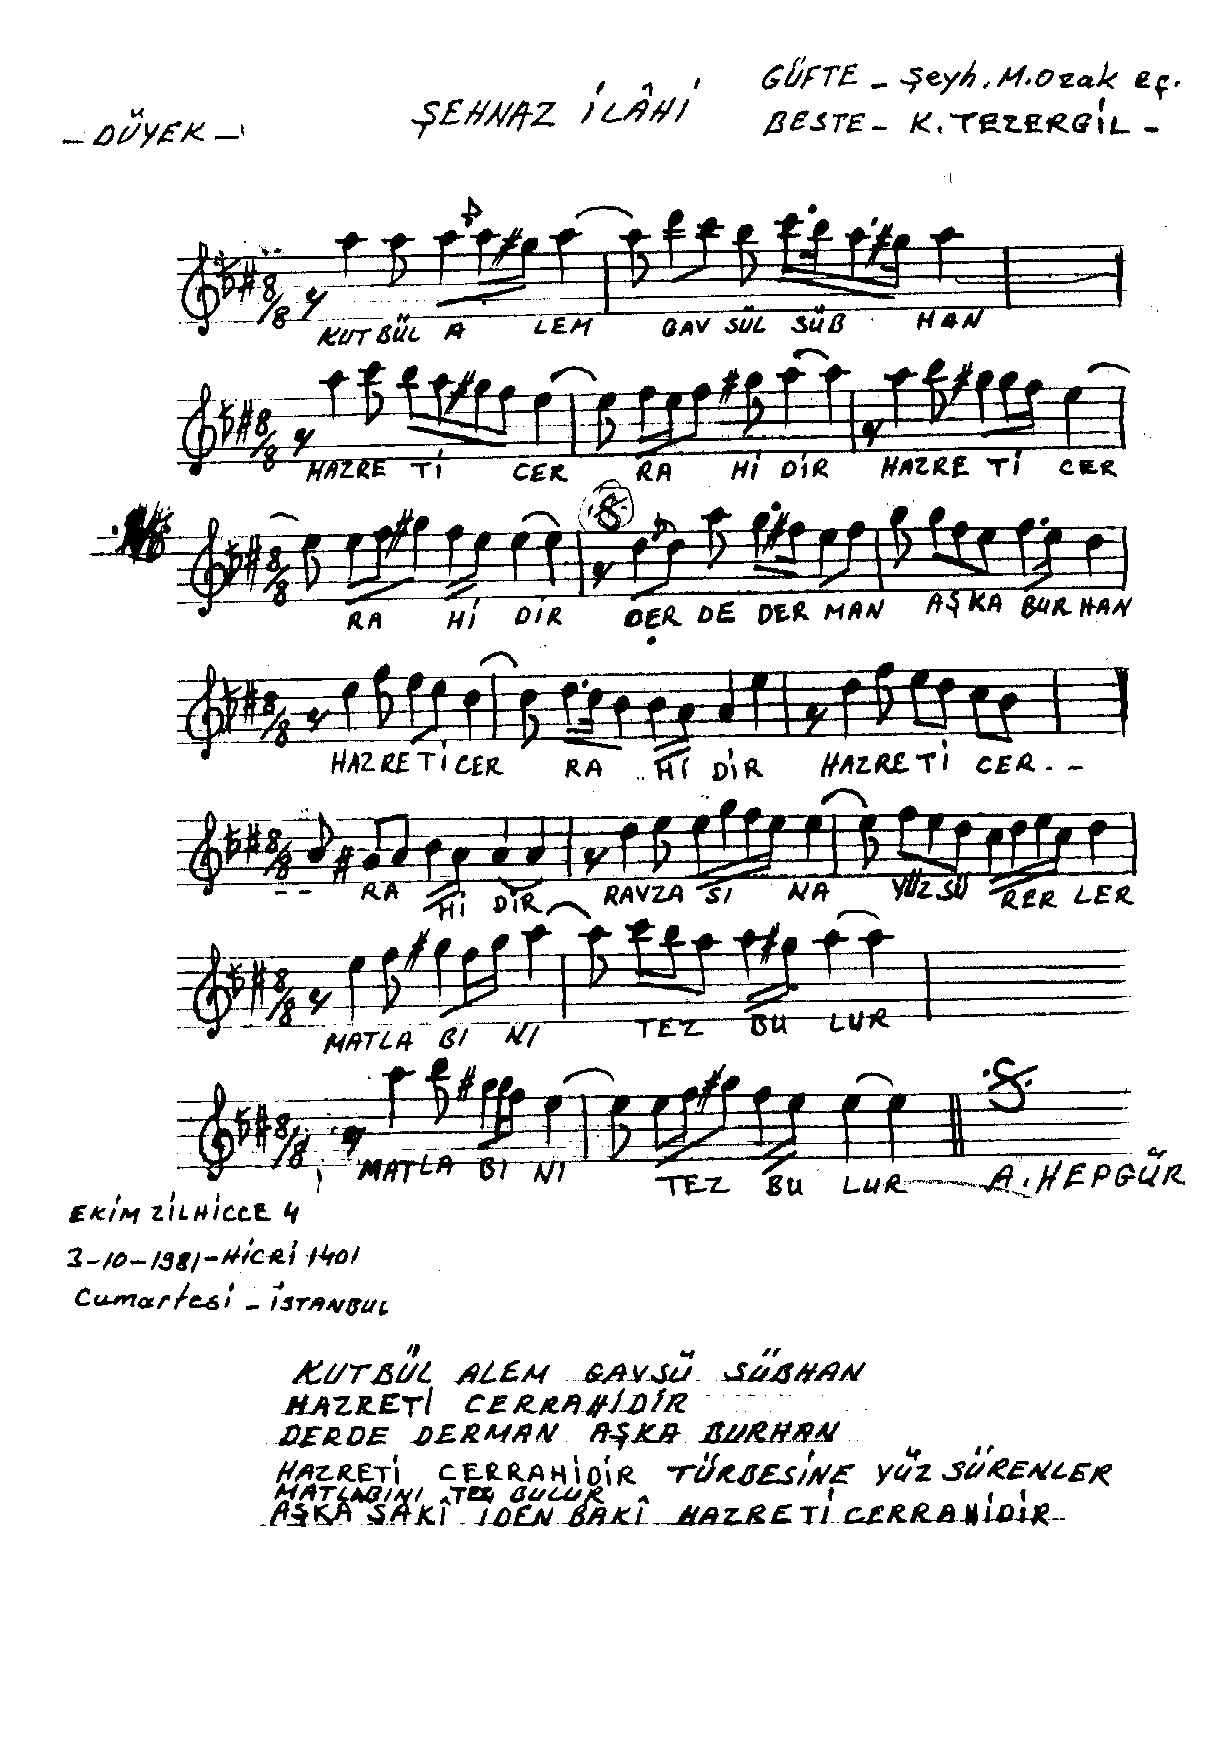 GÜFTE - Şeyh. M. Ozak eç.
- DÜYEK - ŞEHNAZ İLÂHİ BESTE - K. TEZERGİL -
8/8
KUTBÜL A LEM GAV SÜL SÜB HAN
8/8
HAZRE Tİ CER RA Hİ DİR HAZRE Tİ CER
8/8
RA Hİ DİR DER DE DER MAN AŞKA BURHAN
8/8
HAZRE Tİ CER RA Hİ DİR HAZRE Tİ CER - -
8/8
- - RA Hİ DİR RAVZA SI NA YÜZ SÜ RER LER
8/8
MATLA BI NI TEZ BU LUR
8/8
MATLA BI NI TEZ BU LUR A. HEPGÜR
EKİM ZİLHİCCE 4
3-10-1981-HİCRİ 1401
Cumartesi - İSTANBUL
KUTBÜL ALEM GAVSÜ SÜBHAN
HAZRETİ CERRAHİDİR
DERDE DERMAN AŞKA BURHAN
HAZRETİ CERRAHİDİR TÜRBESİNE YÜZ SÜRENLER
MATLABINI TEZ BULUR
AŞKA SAKÎ İDEN BAKÎ HAZRETİ CERRAHİDİR